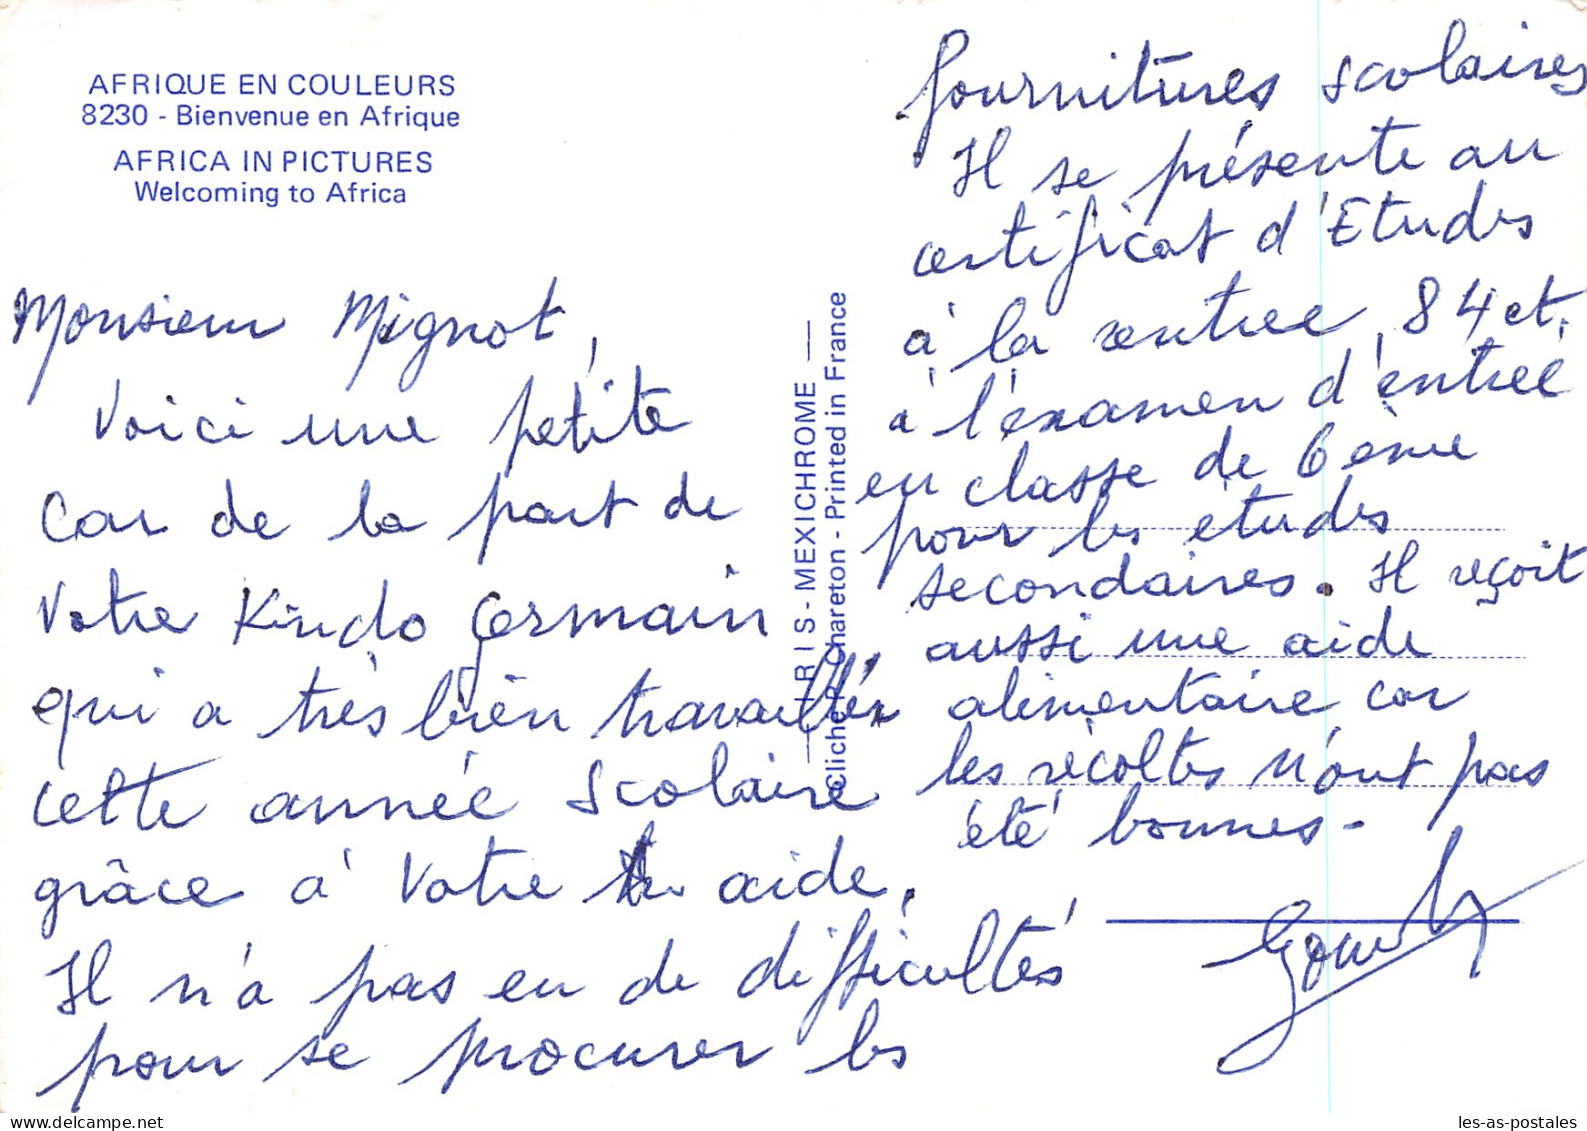 AFRIQUE EN COULEURS
8230 - Bienvenue en Afrique
AFRICA IN PICTURES
Welcoming to Africa
Monsieur Mignot,
Voici une petite
Car de la part de
Votre Kindo Germain
qui a très bien travaillé
cette année scolaire
grâce à Votre aide.
Il n'a pas eu de difficultés
pour se procurer les
IRIS - MEXICHROME
Cliché Chareton - Printed in France
fournitures scolaires
Il se présente au
certificat d'Etudes
à la rentrée 84 et
à l'éxamen d'entrée
en classe de 6ème
pour les études
secondaires. Il reçoit
aussi une aide
alimentaire car
les récoltes n'ont pas
été bonnes-
les-as-postales